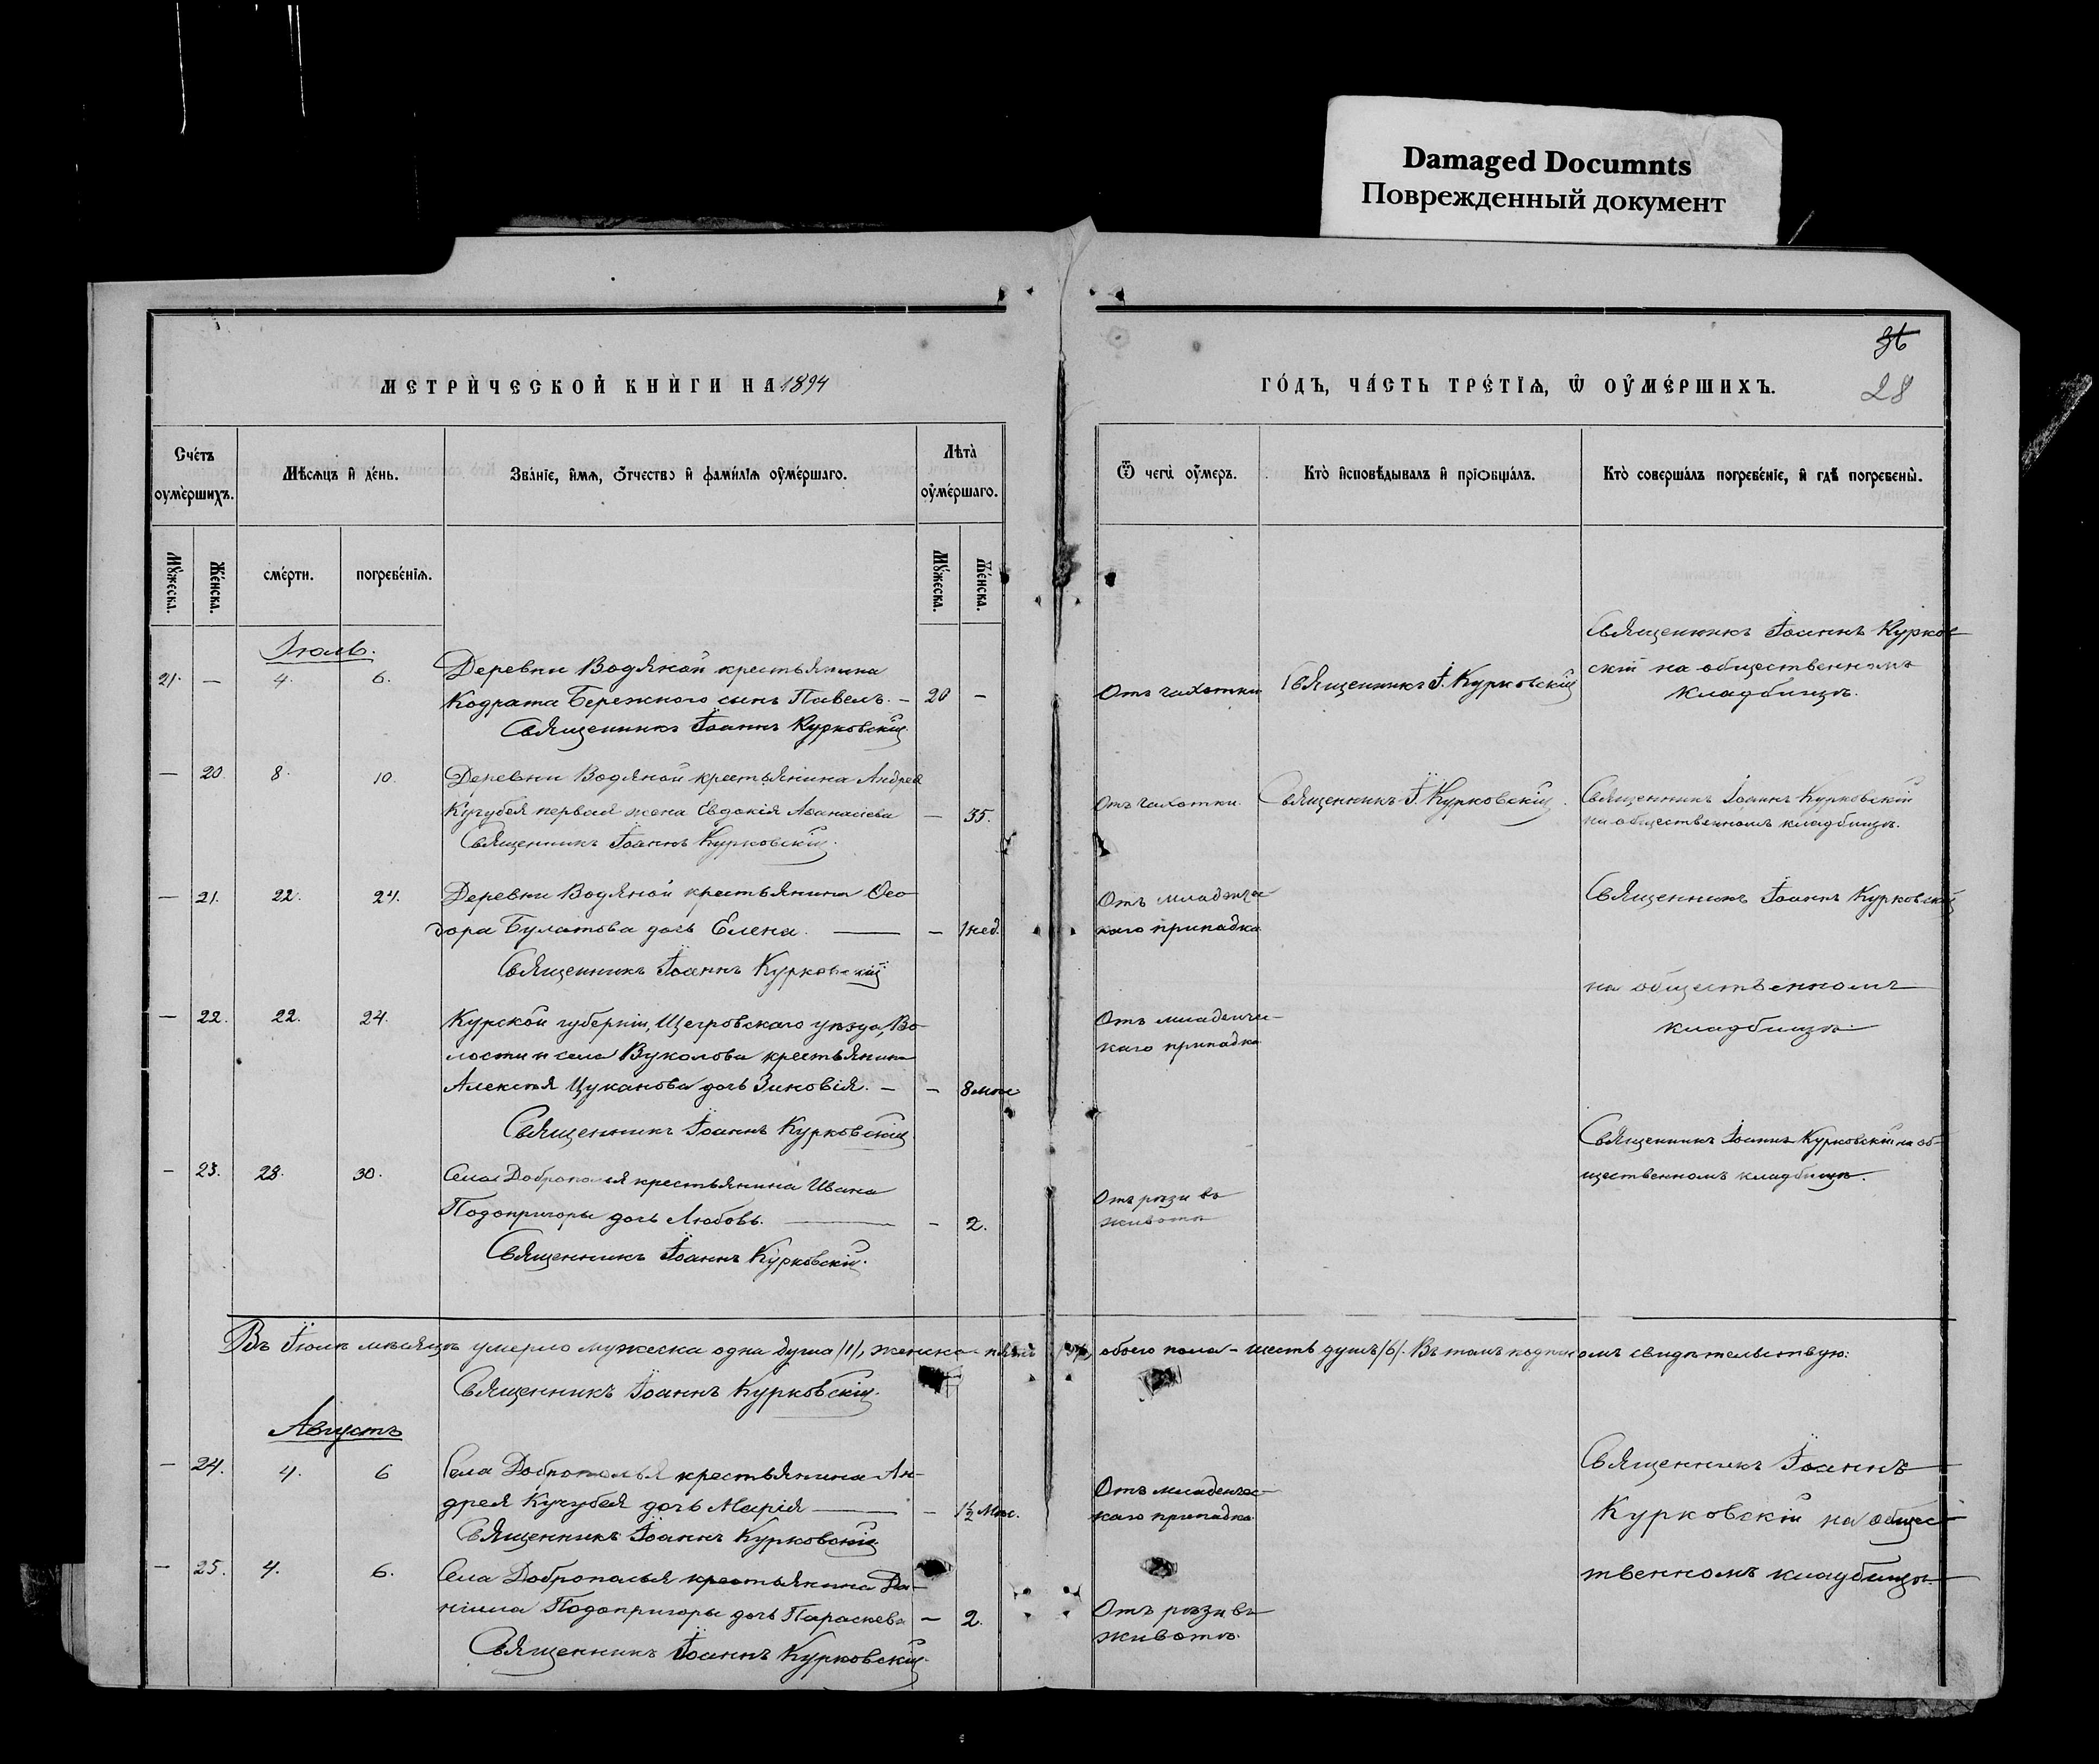 Damaged Documnts
Поврежденный документ
36
28
МЕТРИ́ЧЕСКОЙ КНИ́ГИ НА 1894
ГО́ДЪ, ЧА́СТЬ ТРЕ́ТЇѦ, Ѡ҆ ОУ҆МЕ́РШИХЪ.
Сче́тъ оумершихъ.
Мѣ́сѧцъ и҆ де́нь.
Зва́нїе, и҆мѧ, о҆тчество и҆ фами́лїѧ оу҆ме́ршаго.
Лѣта̀ оу҆ме́ршаго.
Ѿ чегѡ̀ оу҆́меръ.
Кто̀ и҆сповѣ́дывалъ и҆ прїѡбща́лъ.
Кто̀ соверша́лъ погребе́нїе, и҆ гдѣ̀ погребены̀.
Му́жеска.
Же́нска.
сме́рти.
погребе́нїѧ.
Му́жеска.
Же́нска.
Іюль.
21. — 4. 6.
Деревни Водяной крестьянина
Кодрата Бережного сынъ Павелъ. — 20 —
Священникъ Іоаннъ Курковскій
Отъ чахотки
Священникъ І. Курковскій
Священникъ Іоаннъ Курков-
скій на общественномъ
кладбищѣ.
— 20. 8. 10.
Деревни Водяной крестьянина Андрея
Кучубея первая жена Евдокія Аѳанасіева — 35.
Священникъ Іоаннъ Курковскій.
Отъ чахотки.
Священникъ І. Курковскій.
Священникъ Іоаннъ Курковскій
на общественномъ кладбищѣ.
— 21. 22. 24.
Деревни Водяной крестьянина Ѳео-
дора Булатова дочь Елена. — — 1 нед.
Священникъ Іоаннъ Курковскій
Отъ младенче-
каго припадка
Священникъ Іоаннъ Курковскій
на общественномъ
кладбищѣ
— 22. 22. 24.
Курской губерніи, Щегровскаго уѣзда, Во-
лости и села Вуколова крестьянина
Алексѣя Цуканова дочь Зиновія. — — 8 мѣс.
Священникъ Іоаннъ Курковскій
Отъ младенче-
каго припадка
Священникъ Іоаннъ Курковскій на об-
щественномъ кладбищѣ.
— 23. 28. 30.
Села Доброполья крестьянина Ивана
Подопригоры дочь Любовь. — — 2.
Священникъ Іоаннъ Курковскій.
Отъ рѣзи въ
животѣ
Въ Іюлѣ мѣсяцѣ умерло мужеска одна душа /1/, женска — пять /5/, обоего пола — шесть душъ /6/. Въ томъ свидѣтельствую:
Священникъ Іоаннъ Курковскій.
Августъ
— 24. 4. 6
Села Доброполья крестьянина Ан-
дрея Кучубея дочь Марія — — 1½ мѣс.
Священникъ Іоаннъ Курковскій
Отъ младенче-
каго припадка
Священникъ Іоаннъ
Курковскій на общес-
твенномъ кладбищѣ.
— 25. 4. 6.
Села Доброполья крестьянина Да-
ніила Подопригоры дочь Параскева — 2.
Священникъ Іоаннъ Курковскій.
Отъ рѣзи въ
животѣ.